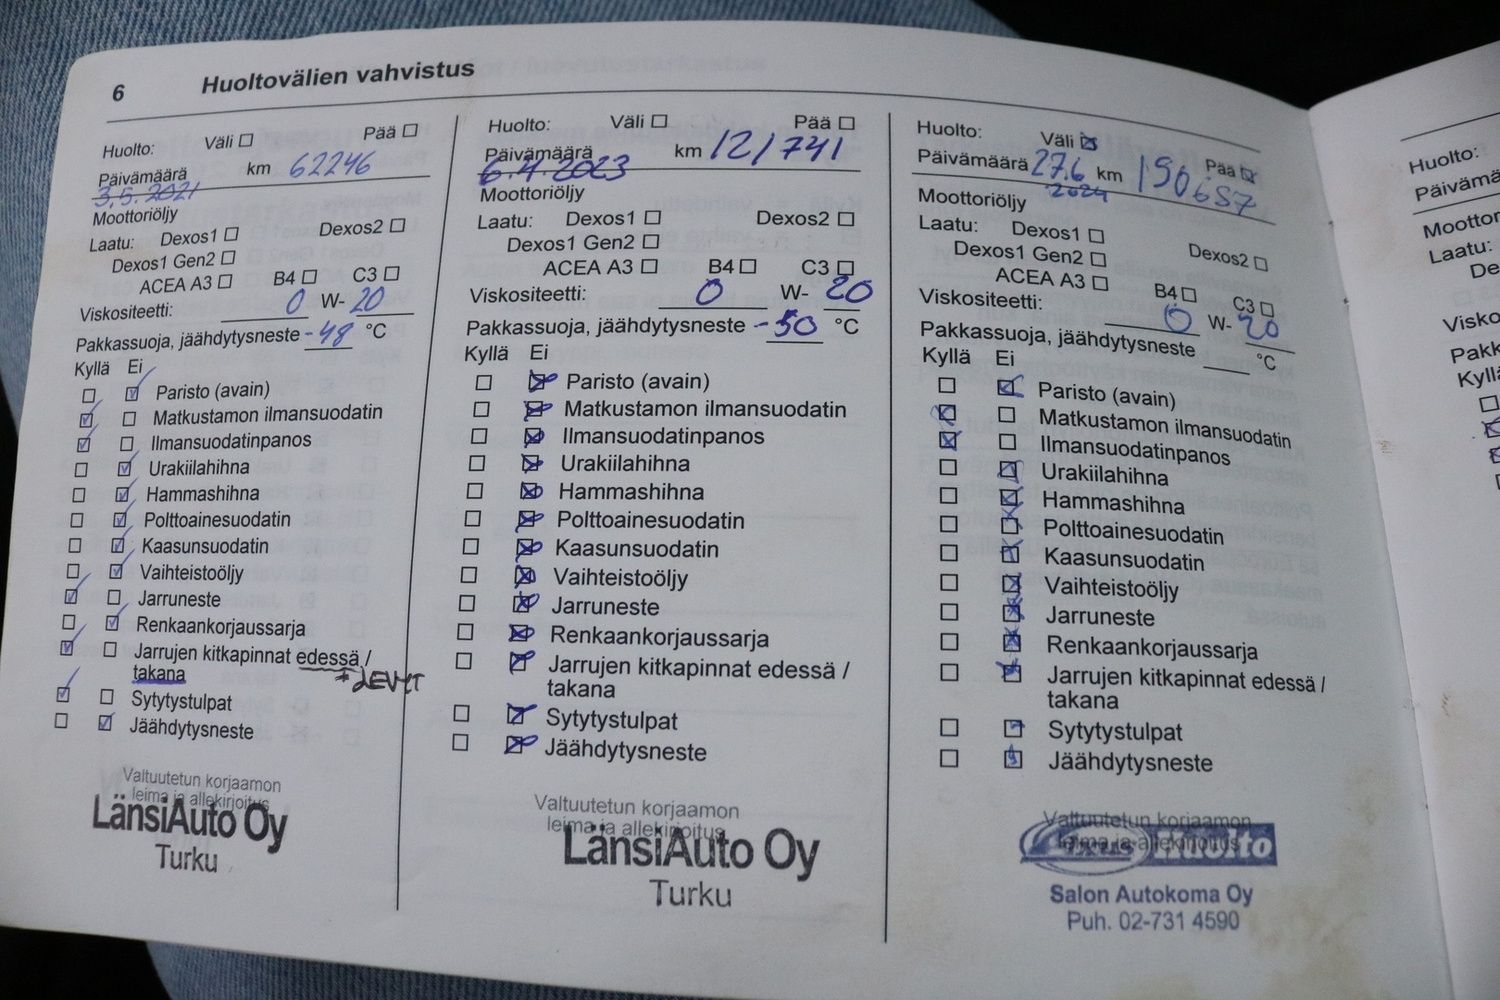 6 Huoltovälien vahvistus
Huolto: Väli Pää
Päivämäärä km 62246
3.5.2021
Moottoriöljy
Laatu: Dexos1 Dexos2
Dexos1 Gen2
ACEA A3 B4 C3
Viskositeetti: 0 W- 20
Pakkassuoja, jäähdytysneste -48 °C
Kyllä Ei
Paristo (avain)
Matkustamon ilmansuodatin
Ilmansuodatinpanos
Urakiilahihna
Hammashihna
Polttoainesuodatin
Kaasunsuodatin
Vaihteistoöljy
Jarruneste
Renkaankorjaussarja
Jarrujen kitkapinnat edessä /
takana + LEVYT
Sytytystulpat
Jäähdytysneste
Valtuutetun korjaamon
leima ja allekirjoitus
LänsiAuto Oy
Turku
Huolto: Väli Pää
Päivämäärä km 121741
6.4.2023
Moottoriöljy
Laatu: Dexos1 Dexos2
Dexos1 Gen2
ACEA A3 B4 C3
Viskositeetti: 0 W- 20
Pakkassuoja, jäähdytysneste -50 °C
Kyllä Ei
Paristo (avain)
Matkustamon ilmansuodatin
Ilmansuodatinpanos
Urakiilahihna
Hammashihna
Polttoainesuodatin
Kaasunsuodatin
Vaihteistoöljy
Jarruneste
Renkaankorjaussarja
Jarrujen kitkapinnat edessä /
takana
Sytytystulpat
Jäähdytysneste
Valtuutetun korjaamon
leima ja allekirjoitus
LänsiAuto Oy
Turku
Huolto: Väli Pää
Päivämäärä 27.6 km 190657
2024
Moottoriöljy
Laatu: Dexos1 Dexos2
Dexos1 Gen2
ACEA A3 B4 C3
Viskositeetti: 0 W- 20
Pakkassuoja, jäähdytysneste °C
Kyllä Ei
Paristo (avain)
Matkustamon ilmansuodatin
Ilmansuodatinpanos
Urakiilahihna
Hammashihna
Polttoainesuodatin
Kaasunsuodatin
Vaihteistoöljy
Jarruneste
Renkaankorjaussarja
Jarrujen kitkapinnat edessä /
takana
Sytytystulpat
Jäähdytysneste
Valtuutetun korjaamon
leima ja allekirjoitus
Huolto
Salon Autokoma Oy
Puh. 02-731 4590
Huolto:
Päivämä
Moottor
Laatu:
De
Visko
Pakk
Kyllä